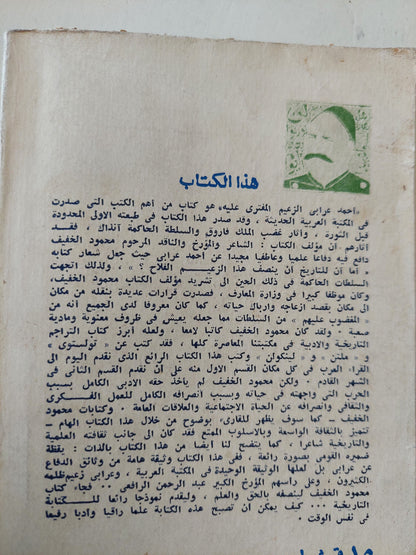 هذا الكتاب
« احمد عرابى الزعيم المفترى عليه» هو كتاب من اهم الكتب التى صدرت
فى المكتبة العربية الحديثة ، وقد صدر هذا الكتاب فى طبعته الاولى المحدودة
قبل الثورة ، واثار غضب الملك فاروق والسلطة الحاكمة آنذاك ، فقد
أثارهم أن مؤلف الكتاب : الشاعر والمؤرخ والناقد المرحوم محمود الخفيف
دافع فيه دفاعا علميا وعاطفيا مجيدا عن احمد عرابى حيث جعل شعار كتابه
« أما آن للتاريخ أن ينصف هذا الزعيم الفلاح ؟ » ، ولذلك اتجهت
السلطات الحاكمة فى ذلك الحين الى تشريد مؤلف الكتاب محمود الخفيف،
وكان موظفا كبيرا فى وزارة المعارف ، فصدرت قرارات عديدة بنقله من مكان
الى مكان بقصد ازعاجه وارباك حياته ، كما كان معروفا لدى الجميع أنه من
« المغضوب عليهم » من السلطات مما جعله يعيش فى ظروف معنوية ومادية
صعبة . ولقد كان محمود الخفيف كاتبا لامعا ، ولعله أبرز كتاب التراجم
التاريخية والادبية فى مكتبتنا المعاصرة كلها ، فقد كتب عن « تولستوى »
و « ملتن » و « لينكولن » وكتب هذا الكتاب الرائع الذى نقدم اليوم الى
القراء العرب فى كل مكان القسم الاول منه على أن نقدم القسم الثانى فى
الشهر القادم . ولكن محمود الخفيف لم يأخذ حقه الادبى الكامل بسبب
الحرب التى واجهته فى حياته وبسبب انصرافه الكامل للعمل الفكرى
والثقافى وانصرافه عن الحياة الاجتماعية والعلاقات العامة . وكتابات محمود
الخفيف ـ كما سوف يظهر للقارىء بوضوح من خلال هذا الكتاب الهام ـ
تتميز بالثقافة الواسعة وبالاسلوب الممتع فقد كان الى جانب ثقافته العلمية
والتاريخية شاعرا ، كما يتضح لنا أيضا من هذا الكتاب بالذات : يقظة
ضميره القومى بصورة رائعة ، ففى هذا الكتاب وثيقة هامة من وثائق الدفاع
عن عرابى بل لعلها الوثيقة الوحيدة فى المكتبة العربية ، وعرابى زعيم ظلمه
الكثيرون ، وعلى رأسهم المؤرخ الكبير عبد الرحمن الرافعى .. فجاء كتاب
محمود الخفيف لينصفه بالحق والعلم ، وليقدم نموذجا رائعا للكتابة
التاريخية ... كيف يمكن أن تصبح هذه الكتابة علما راقيا وادبا رفيعا
فى نفس الوقت .